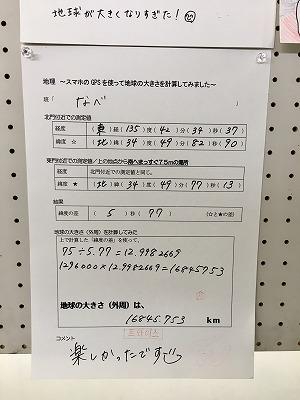 地球が大きくなりすぎた！
地理 ～スマホのGPSを使って地球の大きさを計算してみました～
班（ なべ ）
北門付近での測定値
経度 （東）経（135）度（42）分（34）秒（37）
緯度 ☆ （北）緯（34）度（49）分（82）秒（90）
東門付近での測定値／上の地点から南へまっすぐ75mの場所
経度 北門付近での測定値と同じ。
緯度 ★ （北）緯（34）度（49）分（77）秒（13）
結果
緯度の差 （ 5 ）秒（ 77 ） （☆と★の差）
地球の大きさ（外周）を計算してみた
上で計算した「緯度の差」を使って、
75÷5.77=12.9982669
1296000×12.9982669=16845753
地球の大きさ（外周）は、
16845.753 km
コメント
楽しかったです